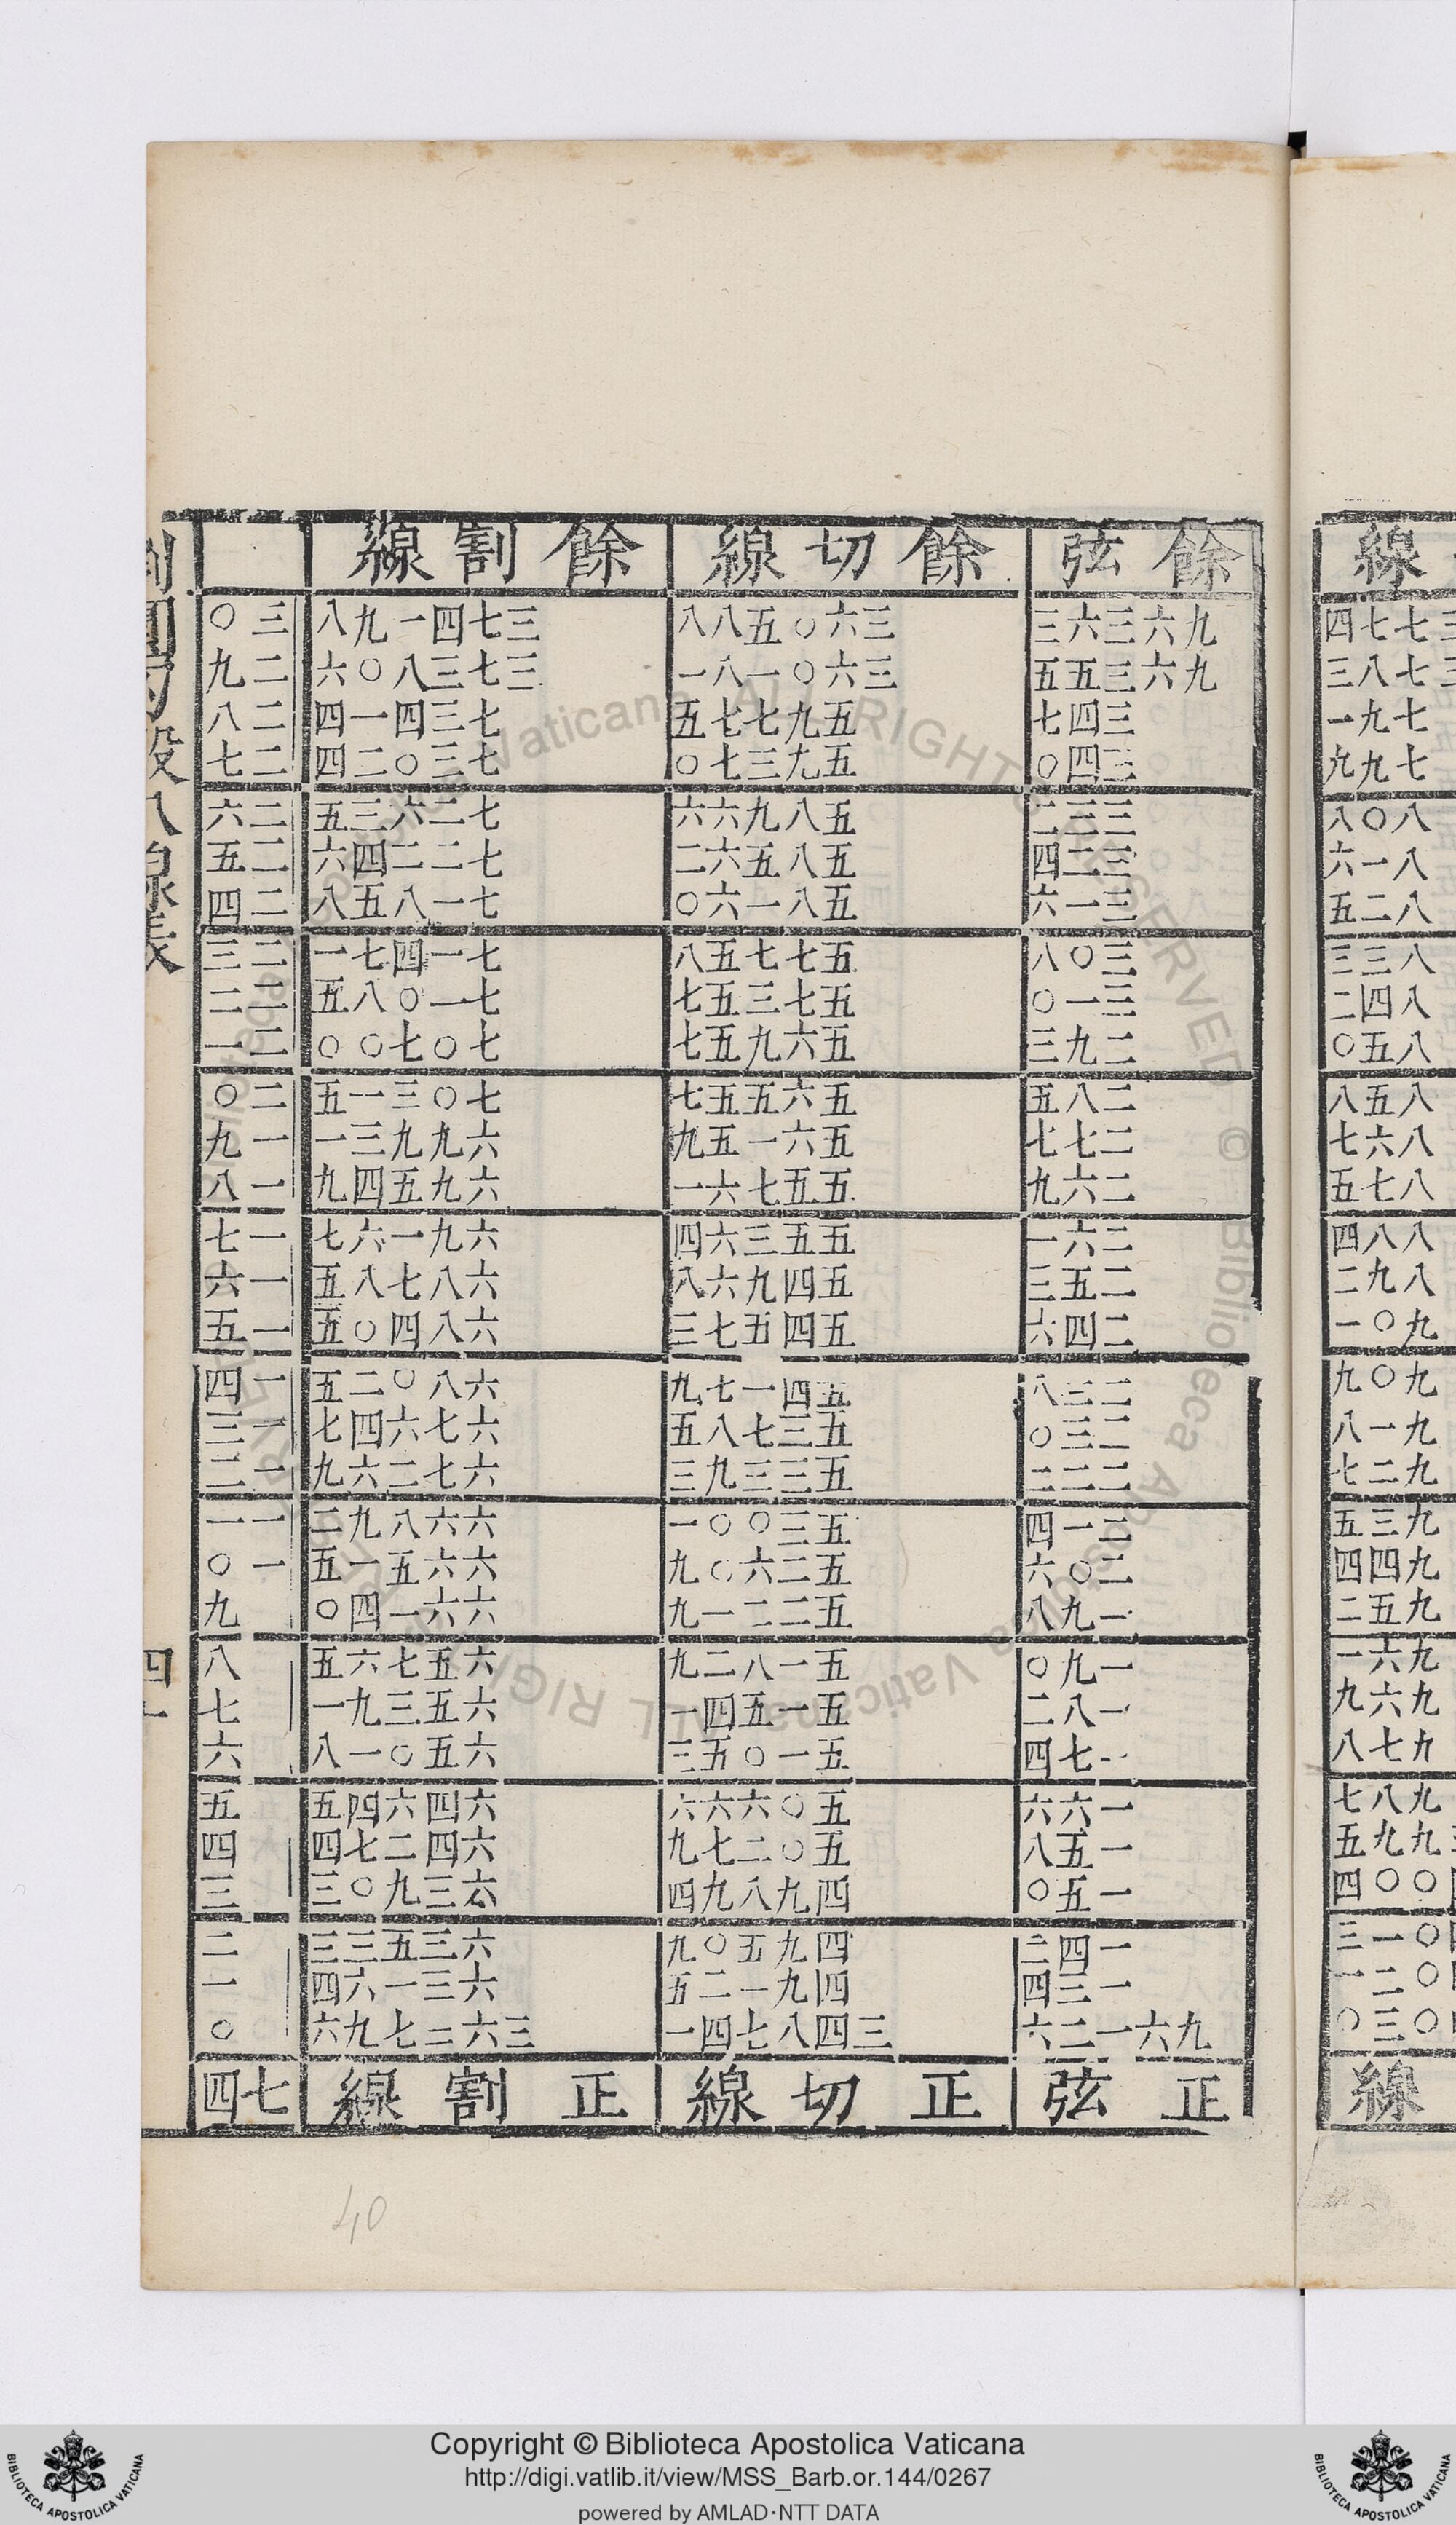 線
七七四
七八三
七九一
七九九
八〇八
八一六
八二五
八三三
八四二
八五〇
八五八
八六七
八七五
八八四
八九二
九〇一
九〇九
九一八
九二七
九三五
九四四
九五二
九六一
九六九
九七八
九八七
九九五
〇〇四
〇一三
〇二一
〇三〇
線
餘弦 餘切線 餘割線
九六三六三 三六〇五八八 三七四一九八 三〇
九六三五五 三六〇一八一 三七三八〇六 二九
三四七 五九七七五 七三四一四 二八
三四〇 五九三七〇 七三〇二四 二七
三三二 五八九六六 七二六三五 二六
三二四 五八五六二 七二二四六 二五
三一六 五八一六〇 七一八五八 二四
三〇八 五七七五八 七一四七一 二三
三一〇 五七三五七 七一〇八五 二二
二九三 五六九五七 七〇七〇〇 二一
二八五 五六五五七 七〇三一五 二〇
二七七 五六一五九 六九九三一 一九
二六九 五五七六一 六九五四九 一八
二六一 五五三六四 六九一六七 一七
二五三 五四九六八 六八七八五 一六
二四六 五四五七三 六八四〇五 一五
二三八 五四一七九 六八〇二五 一四
二三〇 五三七八五 六七六四七 一三
二二二 五三三九三 六七二六九 一二
二一四 五三〇〇一 六六八九二 一一
二〇六 五二六〇九 六六五一五 一〇
一九八 五二二一九 六六一四〇 九
一九〇 五一八二九 六五七六五 八
一八二 五一五四一 六五三九一 七
一七四 五一〇五三 六五〇一八 六
一六六 五〇六六六 六四六四五 五
一五八 五〇二七九 六四二七四 四
一五〇 四九八九四 六三九〇三 三
一四二 四九五〇九 六三五三三 二
一三四 四九一二五 六三一六四 一
九六一二六 三四八七四一 三六二七九六 〇
正弦 正切線 正割線 七四
40
Copyright © Biblioteca Apostolica Vaticana
http://digi.vatlib.it/view/MSS_Barb.or.144/0267
powered by AMLAD·NTT DATA